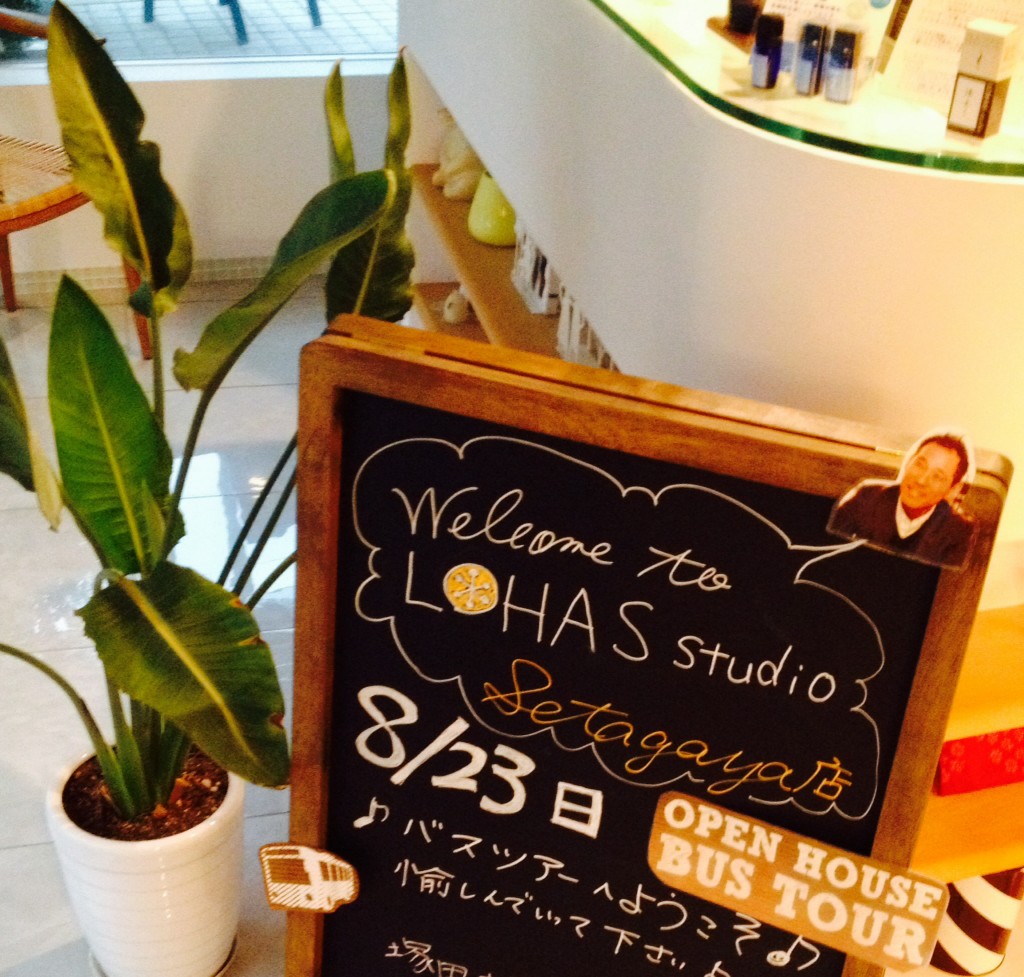 Welcome to
LOHAS studio
Setagaya店
8/23日
OPEN HOUSE
BUS TOUR
♪バスツアーへようこそ♪
愉しんでいって下さい♪
塚田